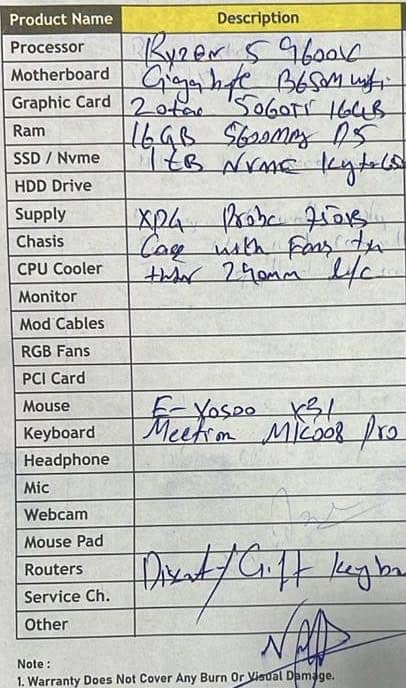 Product Name Description
Processor Ryzen 5 9600X
Motherboard Gigabyte B650M wifi
Graphic Card Zotac 5060TI 16GB
Ram 16GB 5600MHz D5
SSD / Nvme 1TB NVME
HDD Drive
Supply XPG Probe 750B
Chasis Case with Fans
CPU Cooler 240mm L/C
Monitor
Mod Cables
RGB Fans
PCI Card
Mouse E-Yosoo X31
Keyboard Meetion MK008 Pro
Headphone
Mic
Webcam
Mouse Pad
Routers Gift
Service Ch.
Other
Note :
1. Warranty Does Not Cover Any Burn Or Visual Damage.